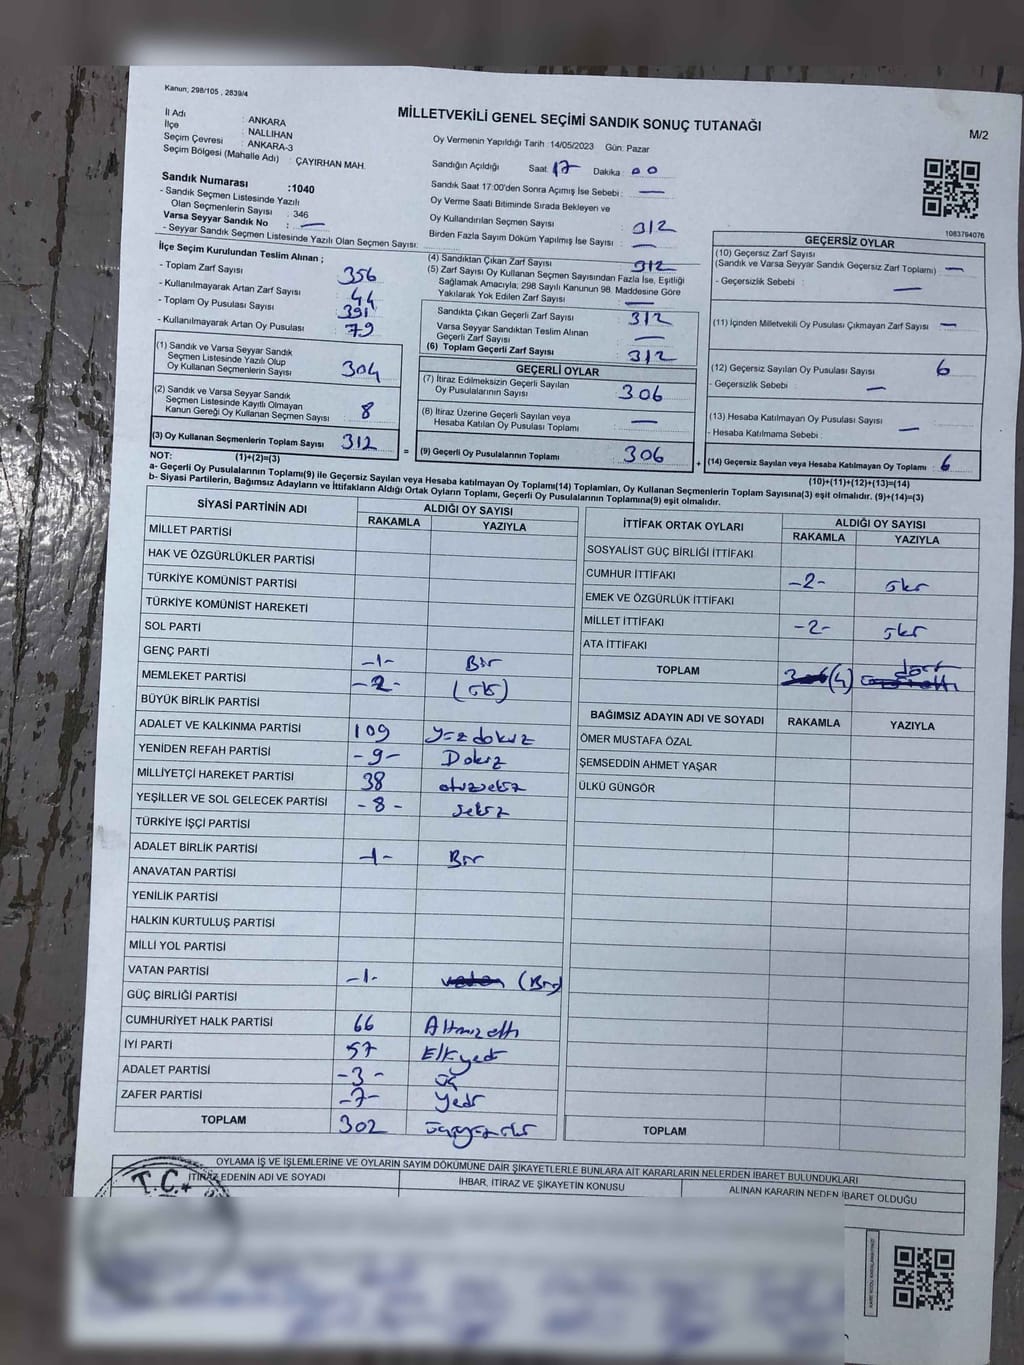 Kanun, 298/105 , 2839/4
MİLLETVEKİLİ GENEL SEÇİMİ SANDIK SONUÇ TUTANAĞI
M/2
İl Adı : ANKARA
İlçe : NALLIHAN
Seçim Çevresi : ANKARA-3
Seçim Bölgesi (Mahalle Adı) : ÇAYIRHAN MAH.
Sandık Numarası :1040
- Sandık Seçmen Listesinde Yazılı
Olan Seçmenlerin Sayısı : 346
Varsa Seyyar Sandık No : —
- Seyyar Sandık Seçmen Listesinde Yazılı Olan Seçmen Sayısı:
Oy Vermenin Yapıldığı Tarih :14/05/2023 Gün: Pazar
Sandığın Açıldığı Saat: 17 Dakika: 00
Sandık Saat 17:00'den Sonra Açımış İse Sebebi : —
Oy Verme Saati Bitiminde Sırada Bekleyen ve
Oy Kullandırılan Seçmen Sayısı 312
Birden Fazla Sayım Döküm Yapılmış İse Sayısı : —
1083794076
İlçe Seçim Kurulundan Teslim Alınan ;
- Toplam Zarf Sayısı 356
- Kullanılmayarak Artan Zarf Sayısı 44
- Toplam Oy Pusulası Sayısı 391
- Kullanılmayarak Artan Oy Pusulası 79
(1) Sandık ve Varsa Seyyar Sandık
Seçmen Listesinde Yazılı Olup
Oy Kullanan Seçmenlerin Sayısı 304
(2) Sandık ve Varsa Seyyar Sandık
Seçmen Listesinde Kayıtlı Olmayan
Kanun Gereği Oy Kullanan Seçmen Sayısı 8
(3) Oy Kullanan Seçmenlerin Toplam Sayısı 312 =
(1)+(2)=(3)
(4) Sandıktan Çıkan Zarf Sayısı 312
(5) Zarf Sayısı Oy Kullanan Seçmen Sayısından Fazla İse, Eşitliği
Sağlamak Amacıyla; 298 Sayılı Kanunun 98. Maddesine Göre
Yakılarak Yok Edilen Zarf Sayısı : —
Sandıkta Çıkan Geçerli Zarf Sayısı 312
Varsa Seyyar Sandıktan Teslim Alınan
Geçerli Zarf Sayısı —
(6) Toplam Geçerli Zarf Sayısı 312
GEÇERLİ OYLAR
(7) İtiraz Edilmeksizin Geçerli Sayılan
Oy Pusulalarının Sayısı 306
(8) İtiraz Üzerine Geçerli Sayılan veya
Hesaba Katılan Oy Pusulası Toplamı —
(9) Geçerli Oy Pusulalarının Toplamı 306 +
GEÇERSİZ OYLAR
(10) Geçersiz Zarf Sayısı
(Sandık ve Varsa Seyyar Sandık Geçersiz Zarf Toplamı) —
- Geçersizlik Sebebi : —
(11) İçinden Milletvekili Oy Pusulası Çıkmayan Zarf Sayısı —
(12) Geçersiz Sayılan Oy Pusulası Sayısı 6
- Geçersizlik Sebebi : —
(13) Hesaba Katılmayan Oy Pusulası Sayısı
- Hesaba Katılmama Sebebi : —
(14) Geçersiz Sayılan veya Hesaba Katılmayan Oy Toplamı 6
(10)+(11)+(12)+(13)=(14)
NOT:
a- Geçerli Oy Pusulalarının Toplamı(9) ile Geçersiz Sayılan veya Hesaba katılmayan Oy Toplamı(14) Toplamları, Oy Kullanan Seçmenlerin Toplam Sayısına(3) eşit olmalıdır. (9)+(14)=(3)
b- Siyasi Partilerin, Bağımsız Adayların ve İttifakların Aldığı Ortak Oyların Toplamı, Geçerli Oy Pusulalarının Toplamına(9) eşit olmalıdır.
SİYASİ PARTİNİN ADI ALDIĞI OY SAYISI
RAKAMLA YAZIYLA
MİLLET PARTİSİ
HAK VE ÖZGÜRLÜKLER PARTİSİ
TÜRKİYE KOMÜNİST PARTİSİ
TÜRKİYE KOMÜNİST HAREKETİ
SOL PARTİ
GENÇ PARTİ -1- Bir
MEMLEKET PARTİSİ -2- (iki)
BÜYÜK BİRLİK PARTİSİ
ADALET VE KALKINMA PARTİSİ 109 yüzdokuz
YENİDEN REFAH PARTİSİ -9- Dokuz
MİLLİYETÇİ HAREKET PARTİSİ 38 otuzsekiz
YEŞİLLER VE SOL GELECEK PARTİSİ -8- sekiz
TÜRKİYE İŞÇİ PARTİSİ
ADALET BİRLİK PARTİSİ -1- Bir
ANAVATAN PARTİSİ
YENİLİK PARTİSİ
HALKIN KURTULUŞ PARTİSİ
MİLLİ YOL PARTİSİ
VATAN PARTİSİ -1- (Bir)
GÜÇ BİRLİĞİ PARTİSİ
CUMHURİYET HALK PARTİSİ 66 Altmışaltı
İYİ PARTİ 57 Elliyedi
ADALET PARTİSİ -3- üç
ZAFER PARTİSİ -7- Yedi
TOPLAM 302 üçyüziki
İTTİFAK ORTAK OYLARI ALDIĞI OY SAYISI
RAKAMLA YAZIYLA
SOSYALİST GÜÇ BİRLİĞİ İTTİFAKI
CUMHUR İTTİFAKI -2- iki
EMEK VE ÖZGÜRLÜK İTTİFAKI
MİLLET İTTİFAKI -2- iki
ATA İTTİFAKI
TOPLAM 306 (4) dört
BAĞIMSIZ ADAYIN ADI VE SOYADI RAKAMLA YAZIYLA
ÖMER MUSTAFA ÖZAL
ŞEMSEDDİN AHMET YAŞAR
ÜLKÜ GÜNGÖR
TOPLAM
OYLAMA İŞ VE İŞLEMLERİNE VE OYLARIN SAYIM DÖKÜMÜNE DAİR ŞİKAYETLERLE BUNLARA AİT KARARLARIN NELERDEN İBARET BULUNDUKLARI
İTİRAZ EDENİN ADI VE SOYADI İHBAR, İTİRAZ VE ŞİKAYETİN KONUSU ALINAN KARARIN NEDEN İBARET OLDUĞU
T.C.